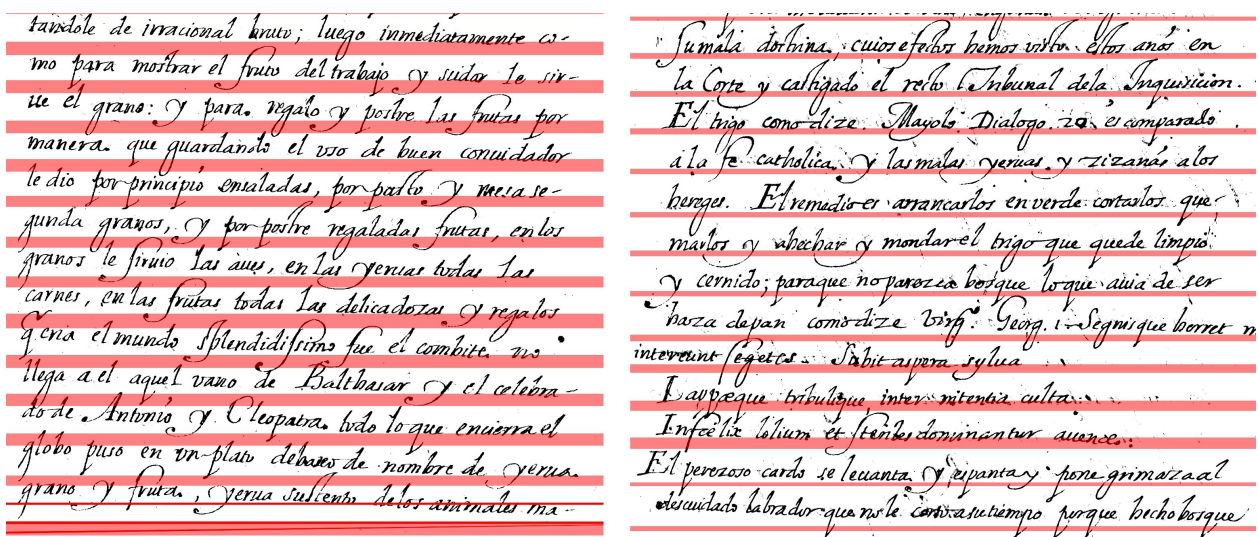 tandole de irracional bruto; luego inmediatamente co-
mo para mostrar el fruto del trabajo y sudor le sir-
ue el grano: y para regalo y postre las frutas por
manera que guardando el vso de buen conuidador
le dio por principio ensaladas, por pasto y mesa se-
gunda granos, y por postre regaladas frutas, en los
granos le siruio las aues, en las yeruas todas las
carnes, en las frutas todas las delicadozas y regalos
q̃ cria el mundo splendidissimo fue el combite no
llega a el aquel vano de Balthasar y el celebra-
do de Antonio y Cleopatra todo lo que encierra el
globo puso en vn plato debaxo de nombre de yerua
grano y fruta, yerua sustento delos animales ma-
su mala doctrina, cuios efectos hemos visto estos anos en
la Corte y castigado el recto Tribunal dela Inquisicion.
El trigo como dize Mayolo Dialogo 20 es comparado
a la fe catholica y las malas yeruas y zizanas a los
hereges. El remedio es arrancarlos en verde cortarlos que-
marlos y abechar y mondar el trigo que quede limpio
y cernido; paraque no parezca bosque lo que auia de ser
haza de pan como dize Virg. Georg. 1 Segnisque horret
intereunt segetes Subit aspera sylua
Lappæque tribulique, inter nitentia culta
Infœlix lolium et steriles dominantur auenæ:
El perezoso cardo se leuanta y espanta y pone grima za al
descuidado labrador que no le corto a su tiempo porque hecho bosque